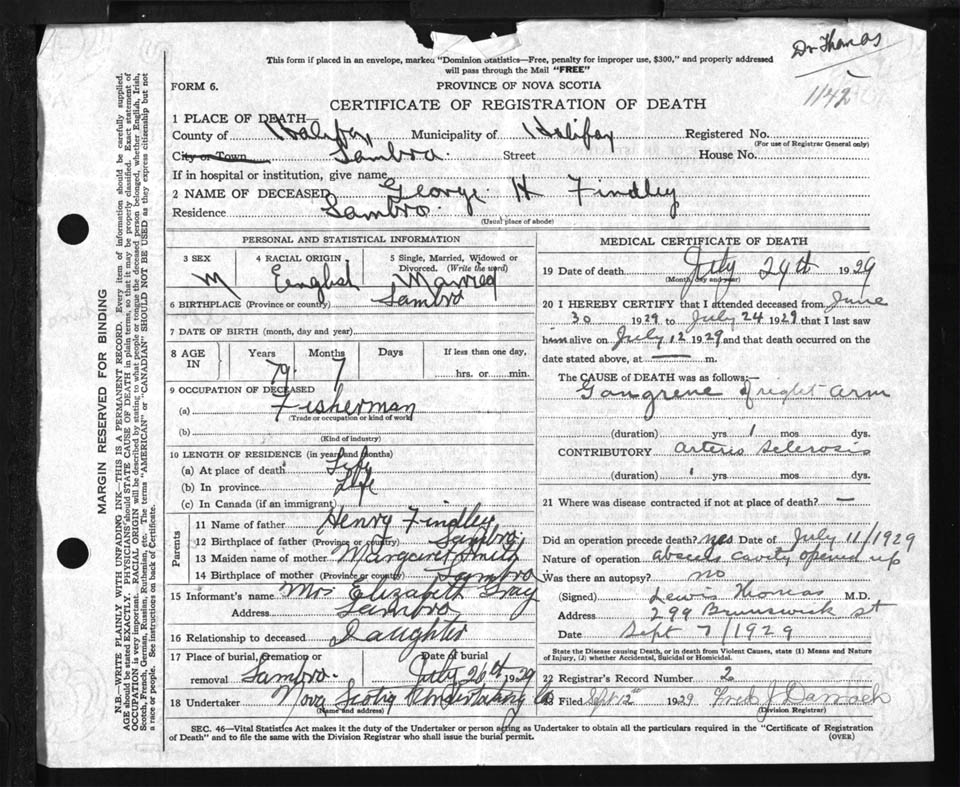 Dr Thomas
1142
This form if placed in an envelope, marked "Dominion Statistics—Free, penalty for improper use, $300," and properly addressed
will pass through the Mail "FREE"
FORM 6.
PROVINCE OF NOVA SCOTIA
CERTIFICATE OF REGISTRATION OF DEATH
1 PLACE OF DEATH—
County of Halifax Municipality of Halifax Registered No.
(For use of Registrar General only)
City or Town Sambro Street House No.
If in hospital or institution, give name
2 NAME OF DECEASED George H Findley
Residence Sambro
(Usual place of abode)
PERSONAL AND STATISTICAL INFORMATION
3 SEX M
4 RACIAL ORIGIN English
5 Single, Married, Widowed or Divorced. (Write the word) Married
6 BIRTHPLACE (Province or country) Sambro
7 DATE OF BIRTH (month, day and year)
8 AGE IN Years 79 Months 7 Days If less than one day, hrs. or min.
9 OCCUPATION OF DECEASED
(a) Fisherman
(Trade or occupation or kind of work)
(b)
(Kind of industry)
10 LENGTH OF RESIDENCE (in years and months)
(a) At place of death Life
(b) In province Life
(c) In Canada (if an immigrant)
Parents
11 Name of father Henry Findley
12 Birthplace of father (Province or country) Sambro
13 Maiden name of mother Margaret Smith
14 Birthplace of mother (Province or country) Sambro
15 Informant's name Mrs Elizabeth Gray
Address Sambro
16 Relationship to deceased Daughter
17 Place of burial, cremation or removal Sambro Date of burial July 26th 1929
18 Undertaker Nova Scotia Undertaking Co
(Name and address)
MEDICAL CERTIFICATE OF DEATH
19 Date of death July 24th 1929
(Month, day and year)
20 I HEREBY CERTIFY that I attended deceased from June
30 1929 to July 24 1929 that I last saw
him alive on July 12 1929 and that death occurred on the
date stated above, at — m.
The CAUSE OF DEATH was as follows:—
Gangrene of right arm
(duration) yrs 1 mos dys.
CONTRIBUTORY Arterio Sclerosis
(duration) 1 yrs mos dys.
21 Where was disease contracted if not at place of death? —
Did an operation precede death? yes Date of July 11/1929
Nature of operation abscess cavity opened up
Was there an autopsy? no
(Signed) Lewis Thomas M.D.
Address 299 Brunswick st
Date Sept 7/1929
State the Disease causing Death, or in death from Violent Causes, state (1) Means and Nature
of Injury, (2) whether Accidental, Suicidal or Homicidal.
22 Registrar's Record Number 2
23 Filed Sept 12th 1929 Fred J Darrach
(Division Registrar)
SEC. 46—Vital Statistics Act makes it the duty of the Undertaker or person acting as Undertaker to obtain all the particulars required in the "Certificate of Registration
of Death" and to file the same with the Division Registrar who shall issue the burial permit.
(OVER)
MARGIN RESERVED FOR BINDING
N.B.—WRITE PLAINLY WITH UNFADING INK—THIS IS A PERMANENT RECORD. Every item of information should be carefully supplied.
AGE should be stated EXACTLY. PHYSICIANS should STATE CAUSE OF DEATH in plain terms, so that it may be properly classified. Exact statement of
OCCUPATION is very important. RACIAL ORIGIN will be described by stating to what people or tongue the deceased person belonged, whether English, Irish,
Scotch, French, German, Russian, Ruthenian, etc. The terms "AMERICAN" or "CANADIAN" SHOULD NOT BE USED as they express citizenship but not
a race or people. See instructions on back of Certificate.